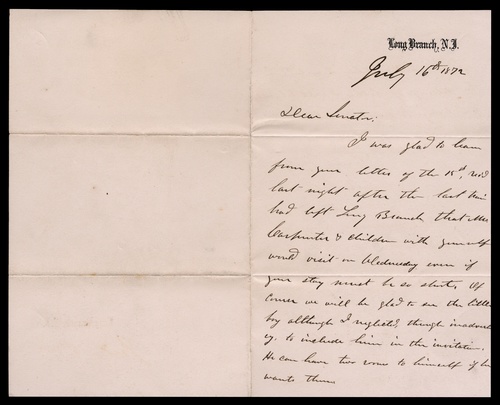 Long Branch, N.J.
July 16th 1872
Dear Senator;
I was glad to learn
from your letter of the 15th, rec'd
last night after the last train
had left Long Branch that Mrs
Carpenter & children with yourself
would visit on Wednesday even if
your stay must be so short. Of
course we will be glad to see the little
boy although I neglected, though inadvertent
ly, to include him in the invitation.
He can have two rooms to himself if he
wants them